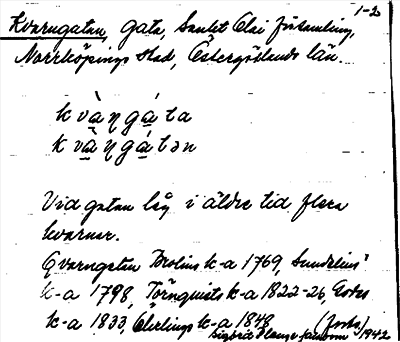 1-2
Kvarngatan, gata, Sankt Olai församling,
Norrköpings stad, Östergötlands län.
kvàŋgáta
kvàŋgátən
Vid gatan låg i äldre tid flera
kvarnar.
Qvarngatan Brolins k-a 1769, Sundelius'
k-a 1798, Törnquists k-a 1822-26,
k-a 1833, Ekerlings k-a 1848 (forts.)
1942